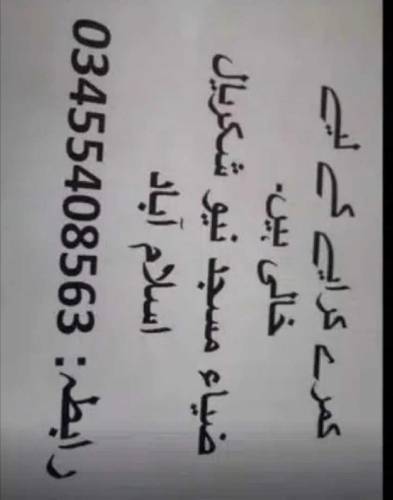 کمرے کرایے کے لیے
خالی ہیں۔
ضیاء مسجد نیو شکریال
اسلام آباد
رابطہ: 03455408563